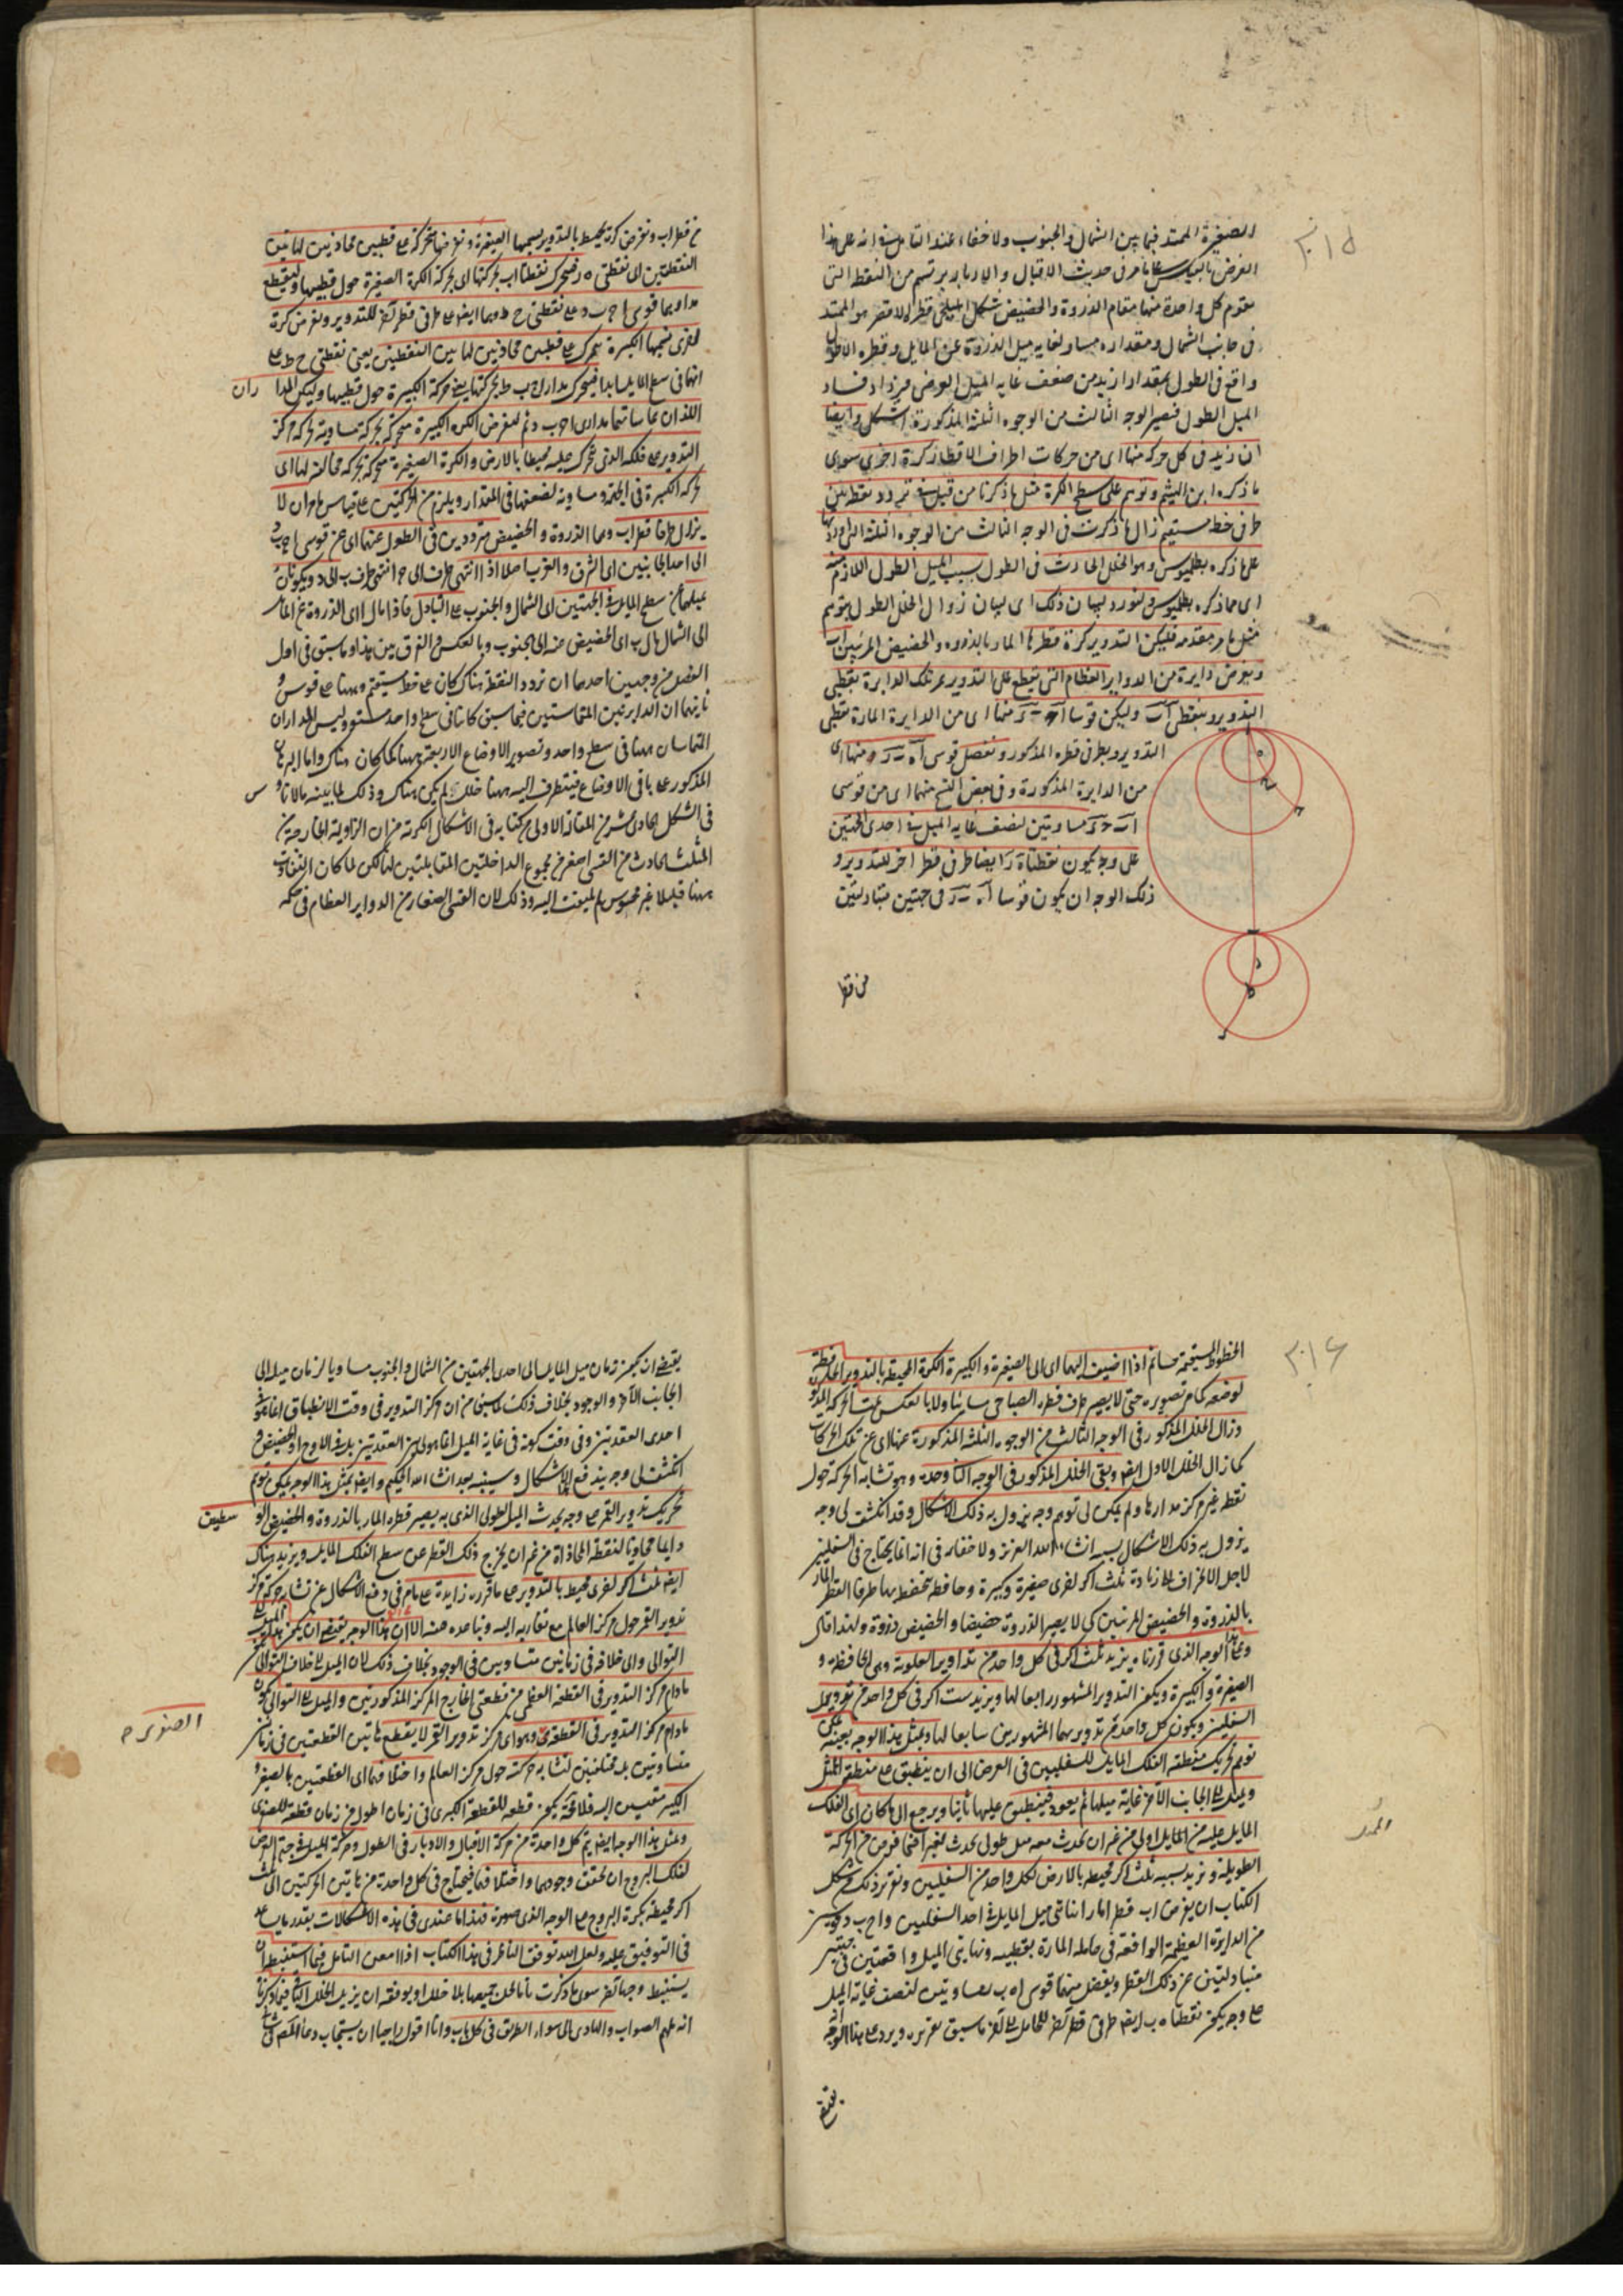 ٣١٥
الصغيرة الممتد فيما بين الشمال والجنوب ولا خفاء عند التأمل في انه على هذا
الفرض بالعكس على ما مر فى حديث الاقبال والادبار يرتسم من النقط التى
تقوم كل واحدة منها مقام الذروة والحضيض شكل اهليلجى قطره الاقصر هو الممتد
فى جانب الشمال ومقداره مساو لغاية ميل الذروة عن المايل وقطره الاطول
واقع فى الطول بمقدار ازيد من ضعف غاية الميل العرضى فيزداد فساد
الميل الطول فيصير الوجه الثالث من الوجوه الثلثة المذكورة اشكل وايضا
ان زيد فى كل حركة منها اى من حركات اطراف الاقطار كرة اخرى سوى
ما ذكره ابن الهيثم وتوهم على سطح الكرة مثل ما ذكرنا من قبل فى تردد نقطة بين
طرفى خط مستقيم زال ما ذكرت فى الوجه الثالث من الوجوه الثلثة التى اوردتها
على ما ذكره بطلميوس وهو الخلل الحادث فى الطول بسبب الميل الطول اللازم منه
اى مما ذكره بطلميوس ولنورد لبيان ذلك اى لبيان زوال الخلل الطول بتوهم
مثل ما مر مقدمه فليكن التدوير كرة قطرها المار بالذروة والحضيض المرئيين اب
ونفرض دايرة من الدواير العظام التى تقع على التدوير تمر تلك الدايرة بقطبى
التدوير وبنقطتى اب وليكن قوسا اح ب د منها اى من الدايرة المارة بقطبى
التدوير وبطرفى قطره المذكور ونفصل قوسى اه ب ر منها اى
من الدايرة المذكورة وفى بعض النسخ منهما اى من قوسى
اح ب د مساويتين لنصف غاية الميل فى احدى الجهتين
على وجه يكون نقطتا ه ر ايضا طرفى قطر اخر للتدوير و
ذلك الوجه ان يكون قوسا اه ب ر فى جهتين متبادلتين
من قطر
من قطر اب ونفرض كرة تحيط بالتدوير نسميها الصغيرة ونفرضها متحركة على قطبين محاذيين لهاتين
النقطتين اى نقطتى ه ر فتتحرك نقطتا اب بحركتها اى بحركة الكرة الصغيرة حول قطبيها وليقطع
مداريهما قوسى اح ب د على نقطتى ح ط وهما ايضا على طرفى قطر آخر للتدوير ونفرض كرة
اخرى نسميها الكبيرة تتحرك على قطبين محاذيين لهاتين النقطتين يعنى نقطتى ح ط على
انهما فى سطح المايل ابدا فيتحرك مدارا اح ب ط بحركتها يعنى حركة الكبيرة حول قطبيها وليكن المدا ران
اللذان يماسانهما مدارى اح ب د ثم لنفرض الكرة الكبيرة متحركة بحركة مساوية لحركة مركز
التدوير على فلكه الذى يتحرك عليه محيطا بالارض والكرة الصغيرة متحركة بحركة مخالفة لها اى
لحركة الكبيرة فى الجهة ومساوية لضعفها فى المقدار ويلزم من الحركتين على قياس ما مر ان لا
يزال طرفا قطر اب وهما الذروة والحضيض مترددين فى الطول عنهما اى عن قوسى اح ب د
الى احد الجانبين اى الشرق والغرب اصلا اذا انتهى طرف ا الى ح انتهى طرف ب الى د ويكونان
ميلهما عن سطح المايل فى الجهتين اى الشمال والجنوب على التبادل فاذا مال ا اى الذروة عن المايل
الى الشمال مال ب اى الحضيض عنه الى الجنوب وبالعكس والفرق بين هذا وما سبق فى اول
الفصل من وجهين احدهما ان تردد النقطة هناك كان على خط مستقيم وههنا على قوس و
ثانيهما ان الدايرتين المتماستين فيما سبق كانتا فى سطح واحد مستو وليس المداران
المتماسان ههنا فى سطح واحد وتصوير الاوضاع الاربعة ههنا كما كان هناك واما البرهان
المذكور على باقى الاوضاع فيتطرق اليه ههنا خلل لم يكن هناك وذلك لما بينه مالاناو س
فى الشكل الحادى عشر من المقالة الاولى من كتابه فى الاشكال الكرية من ان الزاوية الخارجة من
المثلث الحادث من القسى اصغر من مجموع الداخلتين المتقابلتين لها لكن لما كان التفاوت
ههنا قليلا غير محسوس لم يلتفت اليه وذلك لان القسى الصغار من الدواير العظام فى حكم
٣١٦
الخطوط المستقيمة ثم اذا اضيف اليهما اى الى الصغيرة والكبيرة الكرة المحيطة بالتدوير الحافظة
لوضعه كما مر تصويره حتى لا يصير طرف قطره الصباحى مسائيا ولا بالعكس تمت الحركة
وزال الخلل المذكور فى الوجه الثالث من الوجوه الثلثة المذكورة عنها اى عن تلك الحركات
كما زال الخلل الاول ايضا وبقى الخلل المذكور فى الوجه الثانى وحده وهو تشابه الحركة حول
نقطة غير مركز مدارها ولم يمكن لى توهم وجه يزول به ذلك الاشكال وقد انكشف لى وجه
يزول به ذلك الاشكال سيرد انشاء الله العزيز ولا خفاء فى انه انما يحتاج فى السفليين
لاجل الانحراف الى زيادة ثلث اكر اخرى صغيرة وكبيرة وحافظة تحفظ بها طرفا القطر المار
بالذروة والحضيض المرئيين كى لا يصير الذروة حضيضا والحضيض ذروة ولهذا قال
وعلى هذا الوجه الذى قررناه يزيد ثلث اكر فى كل واحد من تداوير العلوية وهى الحافظة و
الصغيرة والكبيرة ويكون التدوير المشهور رابعا لها ويزيد ست اكر فى كل واحد من تدويرى
السفليين ويكون كل واحد من تدويريهما المشهورين سابعا لها وبمثل هذا الوجه بعينه يمكن
توهم تحريك منطقة الفلك المايل للسفليين فى العرض الى ان ينطبق على منطقة الممثل
ويميل الى الجانب الآخر غاية ميلها ثم يعود فينطبق عليها ثانيا ويرجع الى ما كان اى الفلك
المايل عليه من الميل اولا من غير ان يحدث معه ميل طولى يحدث لغيره اختلافا من الحركة
الطويلة ونزيد بسببه ثلث اكر محيطة بالارض لكل واحد من السفليين ونقرر ذلك شكل
الكتاب ان يفرض اب قطرا مارا بنهايتى ميل المايل فى احد السفليين واح ب د قوسين
من الدايرة العظيمة الواقعة فى حامله المارة بقطبيه ونهايتى الميل واقعتين فى جهتين
متبادلتين عن ذلك القطر ويفصل منهما قوسى اه ب ر مساويتين لنصف غاية الميل
على وجه يكون نقطتا ه ب ايضا طرفى قطر آخر للحامل الى آخر ما سبق تقريره ويرد على هذا الوجه انه
يقتضى
يقتضى ان يكون زمان ميل المايل الى احدى الجهتين من الشمال والجنوب مساويا لزمان ميله الى
الجانب الآخر والوجود بخلاف ذلك لما سبق من ان مركز التدوير فى وقت الانطباق انما هو فى
احدى العقدتين وفى وقت كونه فى غاية الميل انما هو بين العقدتين بل فى الاوج او الحضيض وقد
انكشف لى وجه يندفع به الاشكال وسنبينه بعد انشاء الله الحكيم وايضا بمثل هذا الوجه يمكن توهم
تحريك تدوير القمر على وجه يحدث الميل الطولى الذى به يصير قطره المار بالذروة والحضيض الو سطيين
دايما محاذيا لنقطة المحاذاة من غير ان يخرج ذلك القطر عن سطح الفلك المايل ويزيد هناك
ايضا ثلث اكر اخرى محيطة بالتدوير على ما قرره زايدة على ما مر فى دفع الاشكال عن تشابه حركة مركز
تدوير القمر حول مركز العالم مع تقاربه اليه وتباعده عنه الا ان هذا الوجه يقتضى ان يكون الميل الى
التوالى والى خلافه فى زمانين متساويين فى الوجود بخلاف ذلك لان الميل الى خلاف التوالى يكون
ما دام مركز التدوير فى القطعة العظمى من قطعتى الخارج المركز المذكورتين والميل الى التوالى يكون
ما دام مركز التدوير فى القطعة الصغرى وهو اى مركز تدوير القمر لا يقطع هاتين القطعتين فى زمانين
متساويين بل مختلفين لتشابه حركته حول مركز العالم واختلافهما اى القطعتين بالصغر و
الكبر مقيسين اليه فلا محالة يكون قطعه للقطعة الكبرى فى زمان اطول من زمان قطعه للصغرى
وبمثل هذا الوجه ايضا يتم كل واحدة من حركة الاقبال والادبار فى الطول وحركة الميل فى جهة العرض
لفلك البروج ان تحقق وجودهما واختلافهما فيحتاج فى كل واحدة من هاتين الحركتين الى ثلث
اكر محيطة بكرة البروج على الوجه الذى صورته فهذا ما عندى فى هذه الاشكالات بقدر ما يساعد
فى التوفيق عليه ولعل الله يوفق الناظر فى هذا الكتاب اذا امعن التأمل فيما استنبطه ان
يستنبط وجها آخر سوى ما ذكرت تاما لحل جميعها بلا خلل او يوفقه ان يزيل الخلل الباقى فيما ذكرته
انه ملهم الصواب والهادى الى سواء الطريق فى كل باب وانا اقول راجيا ان يستجاب دعاء المصنف
الصنوبرى